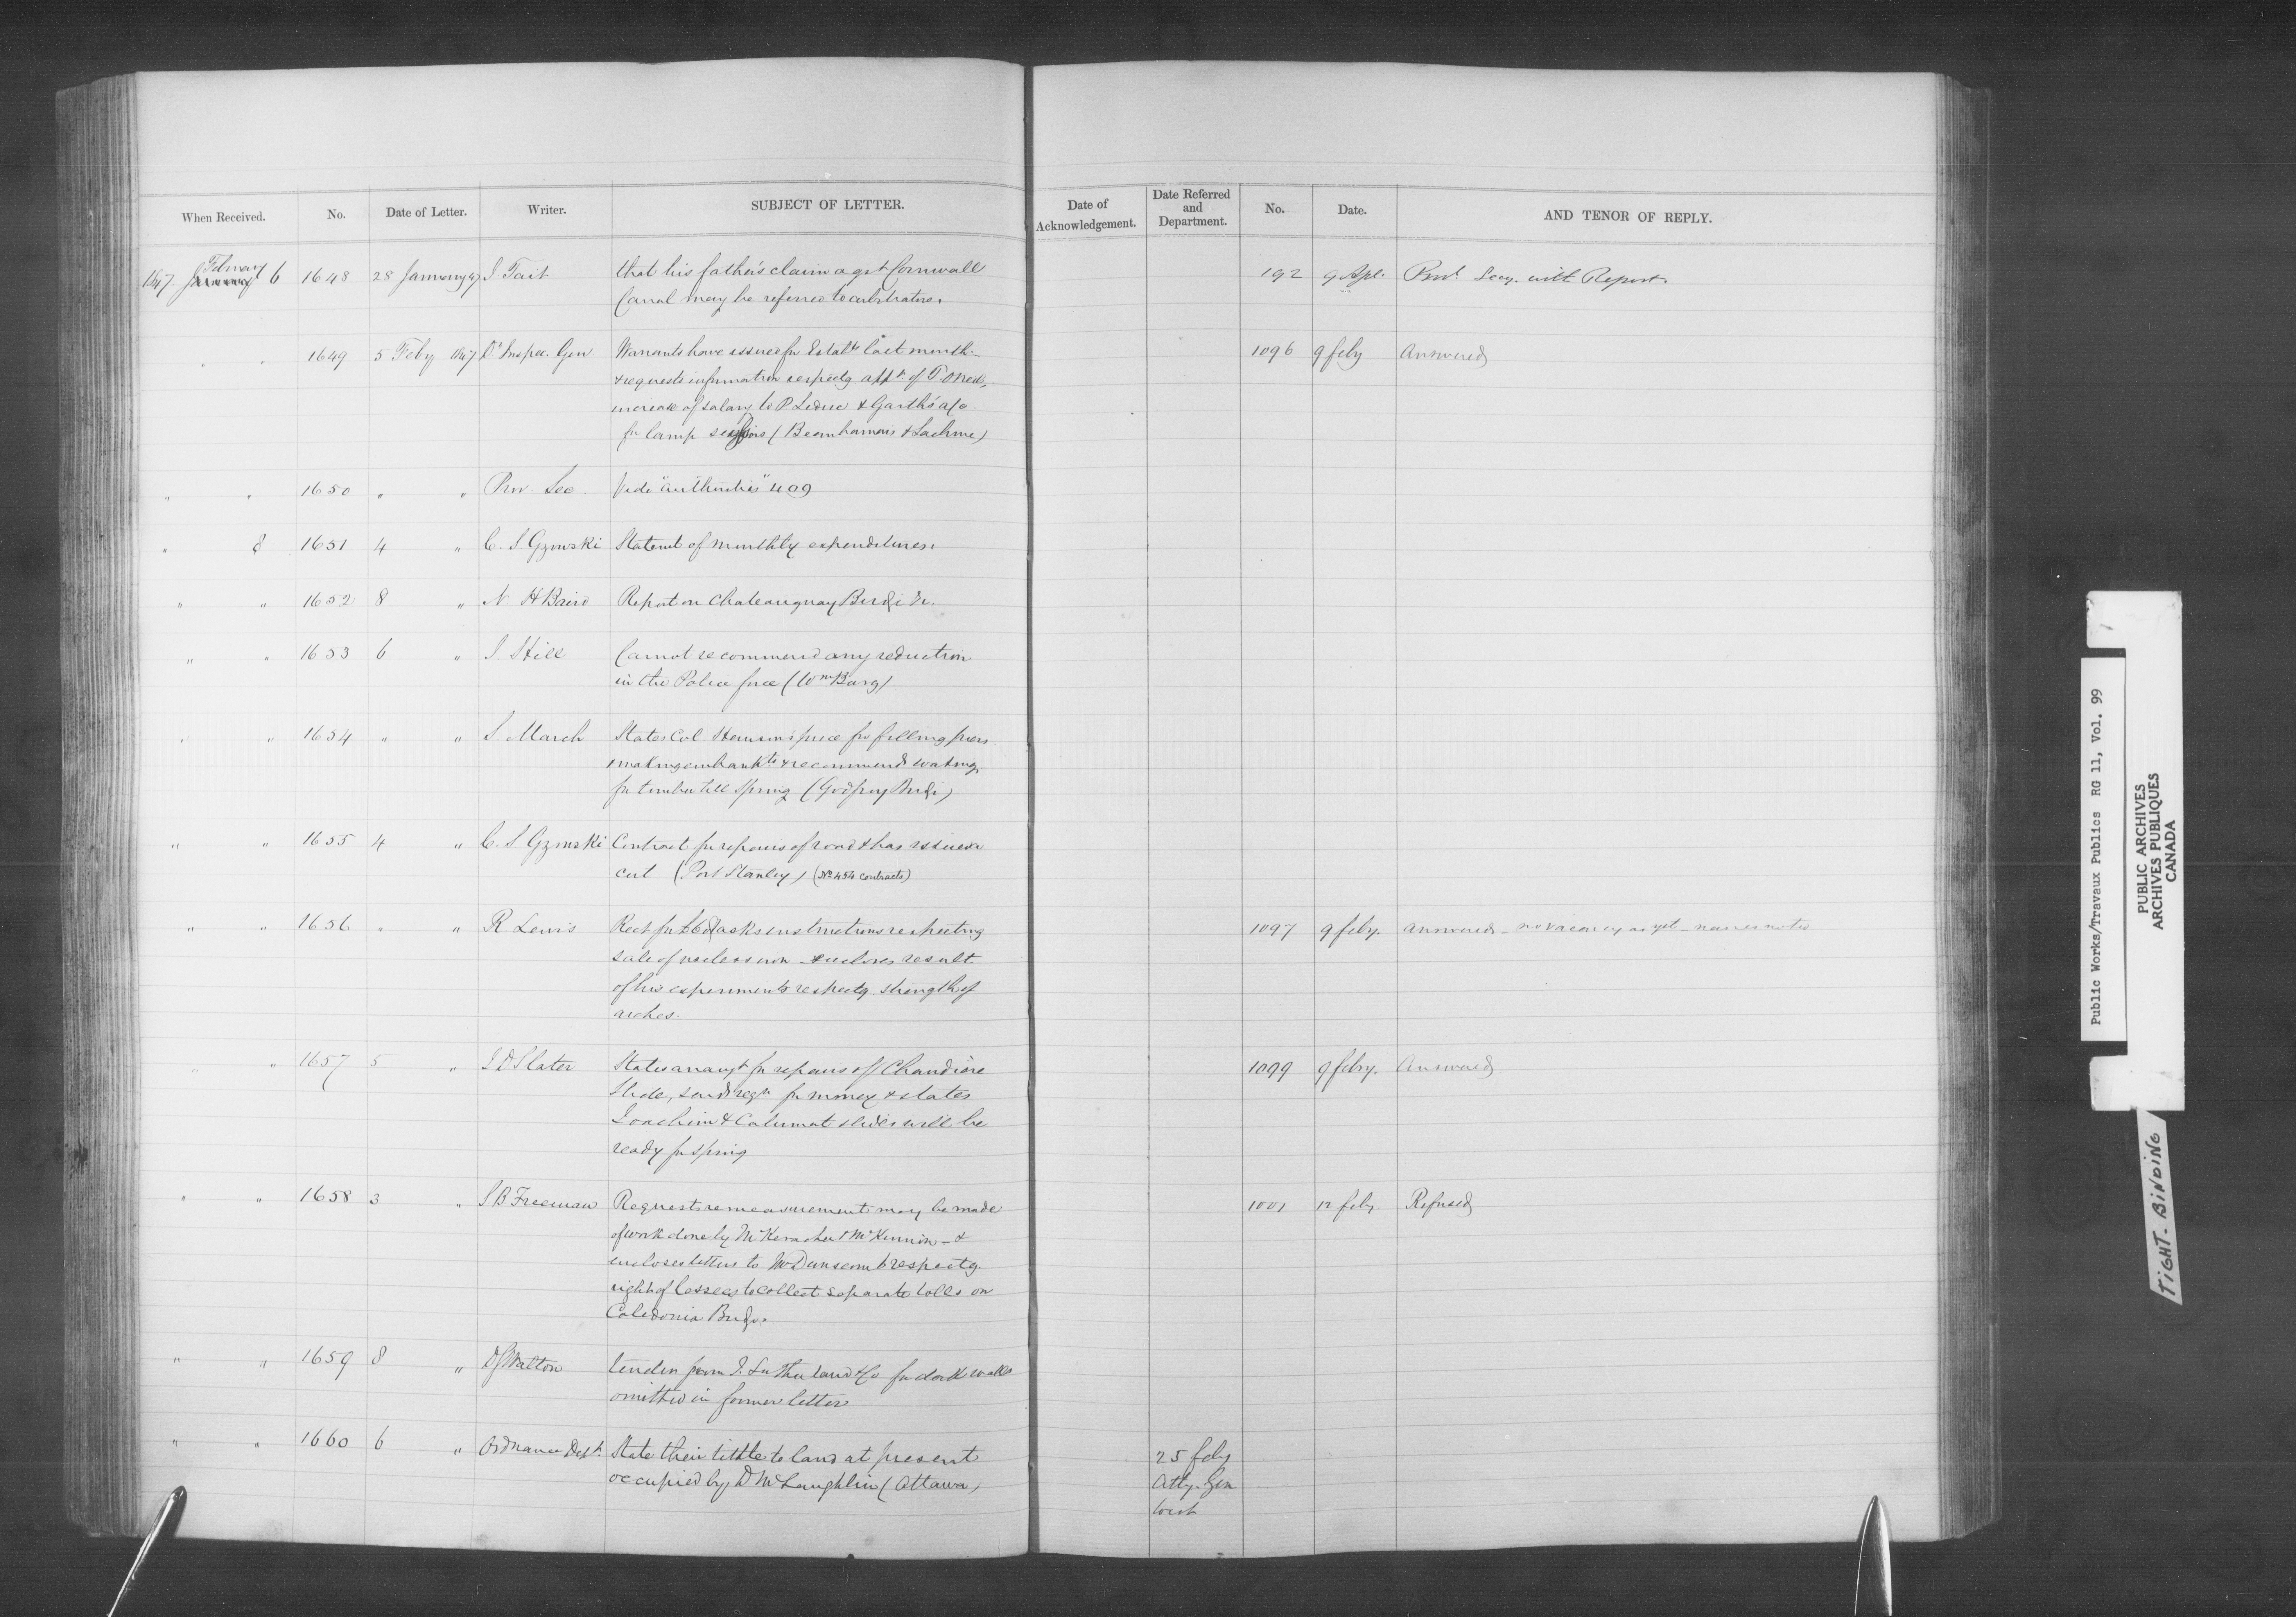 When Received. No. Date of Letter. Writer. SUBJECT OF LETTER. Date of Acknowledgement. Date Referred and Department. No. Date. AND TENOR OF REPLY.
1847. February 6 1648 28 January 47 J. Tait that his father's claim agst Cornwall 192 9 Apl. Provl. Secy. with Report.
Canal may be referred to arbitrators.
" " 1649 5 Feby 1847 Dy Inspec. Gen Warrants have issued for Estabt last month 1096 9 feby Answered
& requests information respectg appt of
increase of salary to P Leduc & Garth's a/c
for lamp (Beauharnois & Lachine)
" " 1650 " " Prov. Sec. Vide "authorities" 409
" 8 1651 4 " C. S. Gzowski Statemt of monthly expenditures.
" " 1652 8 " N H Baird Report on Chateauguay Bridge &c.
" " 1653 6 " J. Hill Cannot recommend any reduction
in the Police force (Wmsburg)
" " 1654 " " S March States Col price for filling piers
& making embankts & recommends waiting
for timber till Spring (Godfrey Bridge)
" " 1655 4 " C. S. Gzowski Contract for repairs of road & has issued a
cert (Port Stanley) (No 454 contracts)
" " 1656 " " R. Lewis Rect for asks instructions respecting 1097 9 feby. answered - no vacancy as yet - names noted
sale of useless iron - & encloses result
of his experiments respectg strength of
arches.
" " 1657 5 " J D Slater States arrangt for repairs of Chaudière 1099 9 feby. Answered
Slide, sends reqn for money & states
Joachim & Calumet slides will be
ready for spring
" " 1658 3 " S B Freeman Requests remeasurement may be made 1001 12 feby. Refused
of work done by McKeracher & McKinnon - &
encloses letters to Mr Dunscomb respectg.
right of lessees to collect separate tolls on
Caledonia Bridge.
" " 1659 8 " Walton tender from J. Sutherland & Co for dock walls
omitted in former letter
" " 1660 6 " Ordnance Dept. State their tittle to land at present 25 feby
occupied by D McLaughlin (Ottawa) Atty. Gen
West
Public Works/Travaux Publics RG 11, Vol. 99
PUBLIC ARCHIVES
ARCHIVES PUBLIQUES
CANADA
TIGHT-BINDING